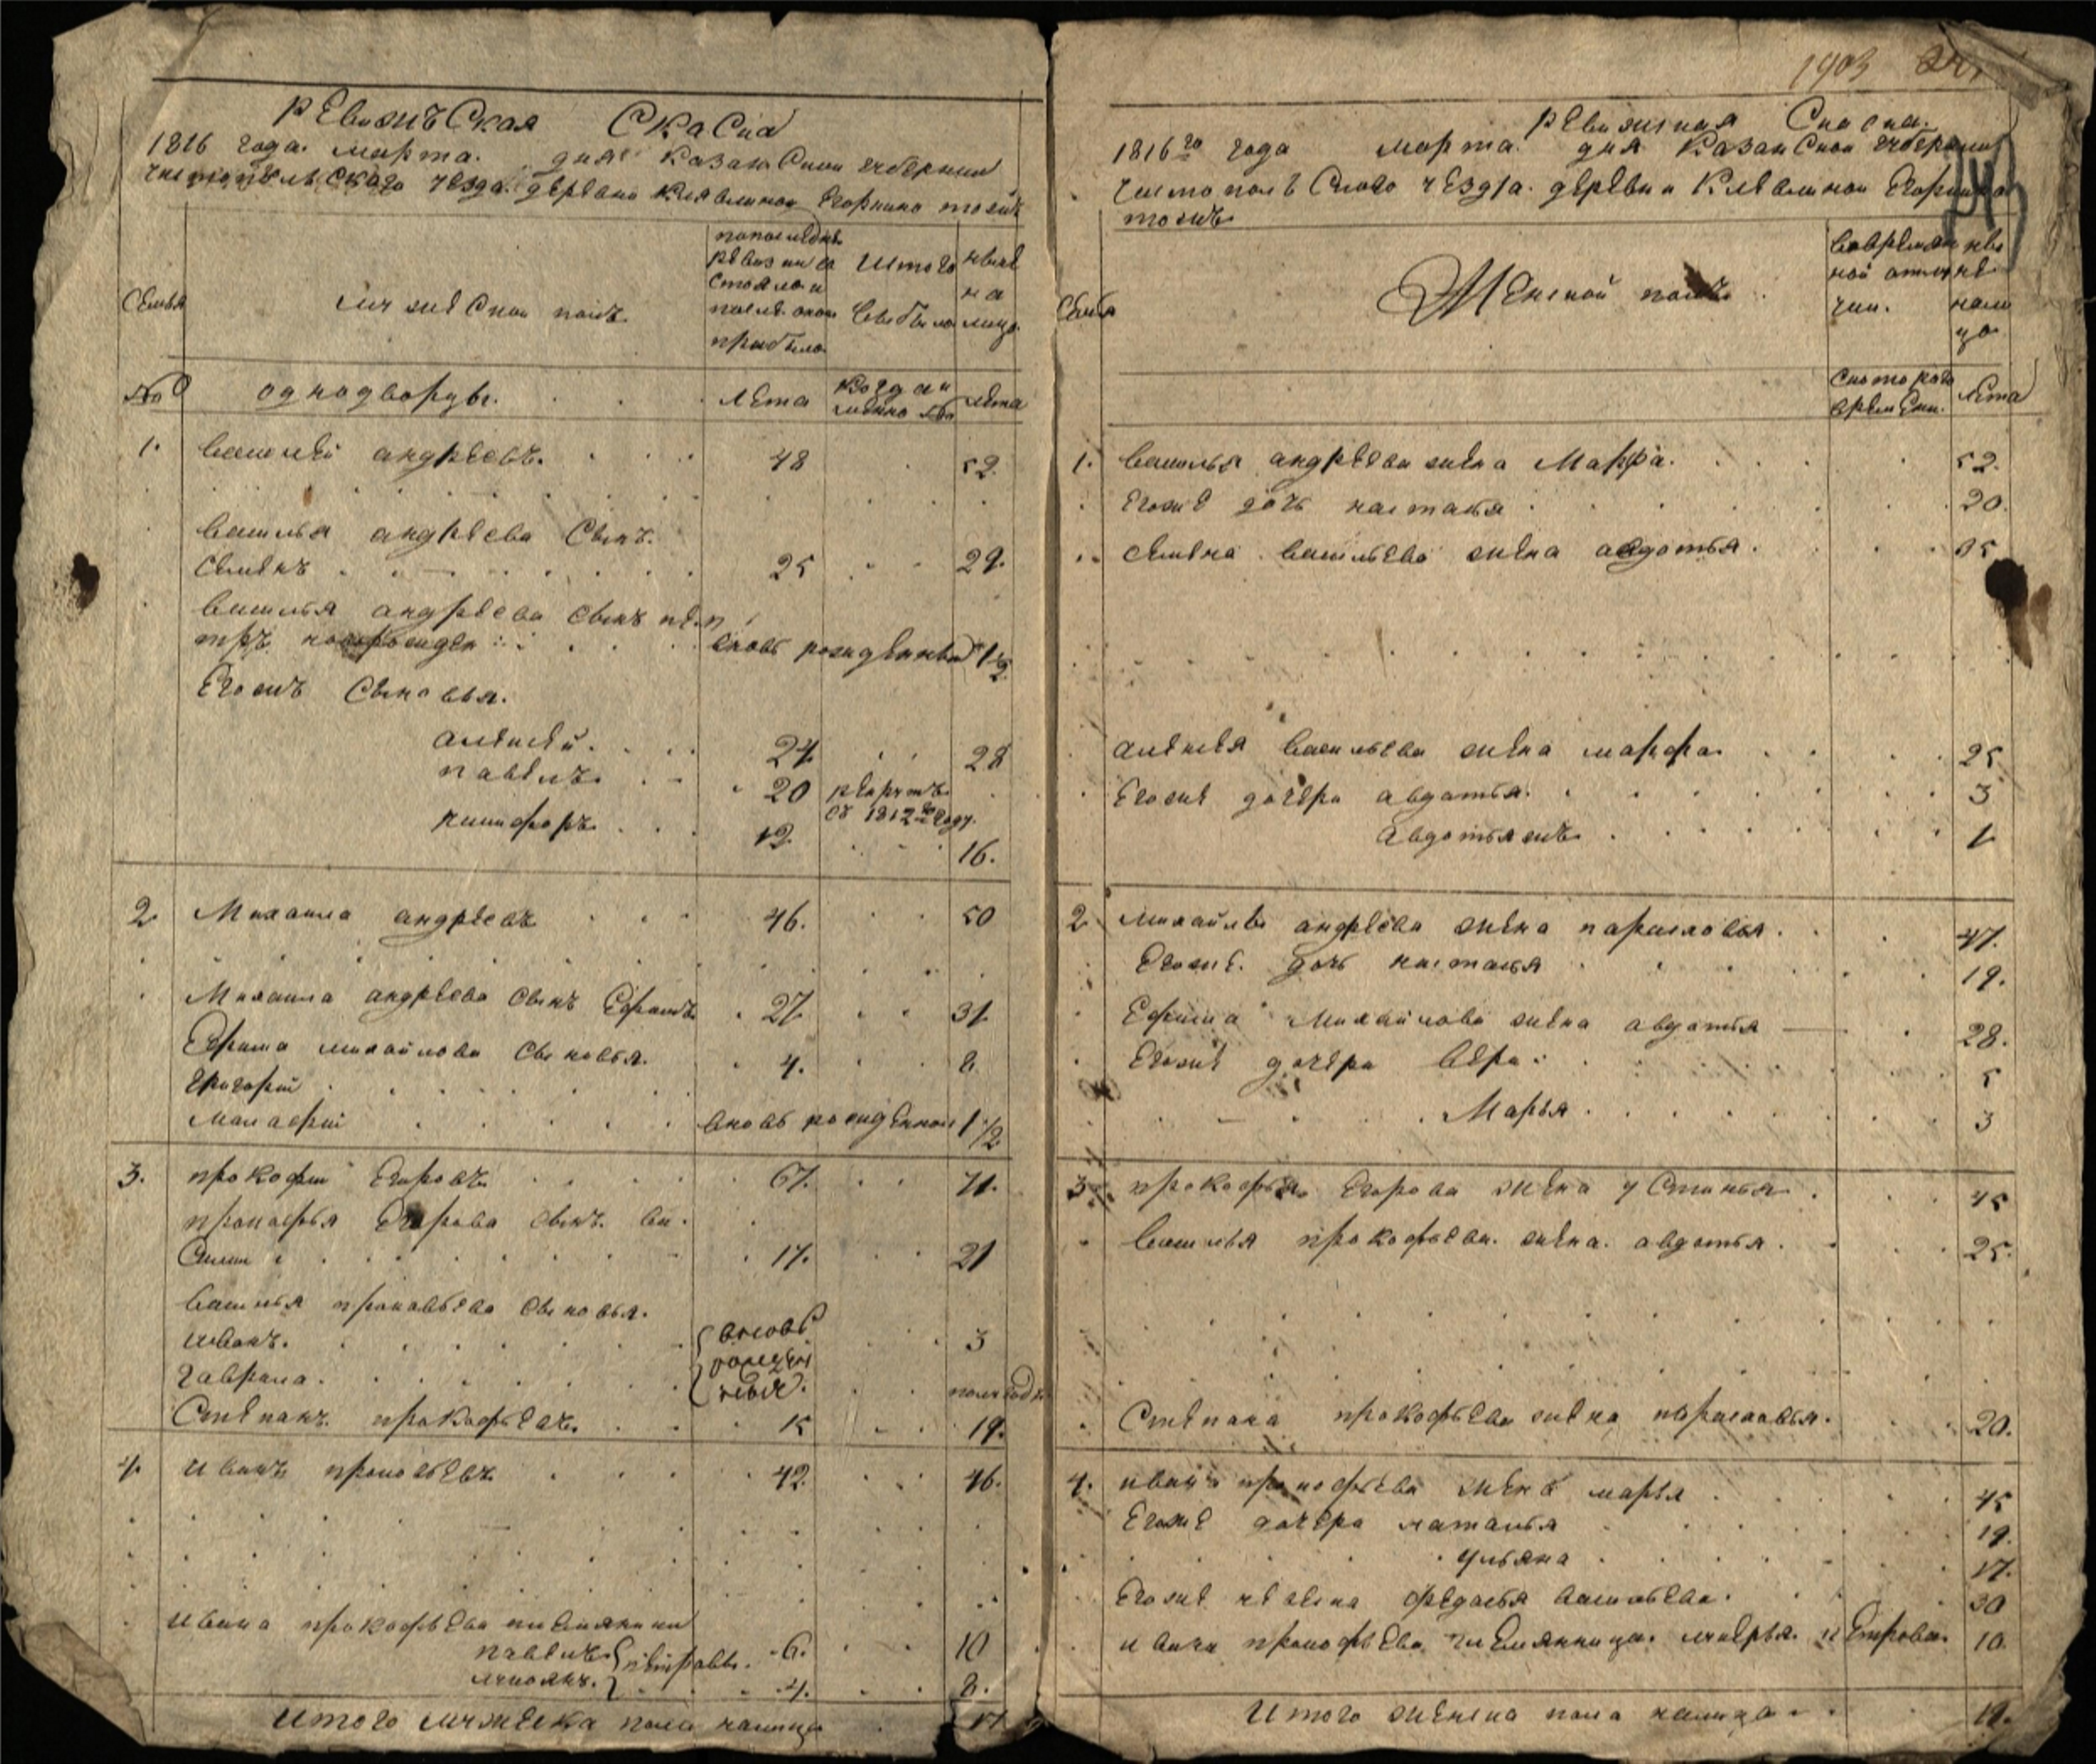 ревижъская скаска
1816 года. марта. дня казанской губернии
чистопольского уезда. деревни клявлиной Егоркино тожъ
попоследнѣ
ревизии со
стояло и
после оной
прибыло
Изтого
выбыло
ныне
на
лицо
Семья
мужеской полъ
№
однодворцы.
лета
когда и
имянно
лета
1. василей андреевъ. 48 52.
василья андреева сынъ.
семенъ 25 29.
василья андреева сынъ пе
тръ новорожден вновь рожденной 1/2
Егожъ сыновья.
алексей. 24 28
павелъ. 20 рекрутъ
въ 1812м году.
никифоръ 12. 16.
2 Михаила андреевъ 46. 50
Михаила андреева сынъ Ефимъ 27 31
Ефима михайлова сыновья. 4. 8
григорий
малафий вновь рожденной 1/2
3. прокофий Егоровъ 67. 71.
прокофья Егорова сынъ ва
силий 17. 21
василья прокофьева сыновья.
иванъ. вновь 3
рожден
гаврила. ные. полугоду
Степанъ прокофьевъ. 15 19.
4. иванъ прокофьевъ 42. 46.
ивана прокофьева племянники
павелъ. 6. 10
петровы.
4. 8.
Итого мужеска пола налицо 17
1903
ревижская скаска.
1816го года марта. дня казанской губернии
чистопольского уезда. деревни клявлиной Егоркино
тожъ
Семья
Женской полъ
вовремян
ной отлу
чки.
ны
не
нали
цо
скоторого
времени.
лета
1. василья андреева жена Марфа. 52.
Егоже дочь настасья 20.
семена васильева жена авдотья. 35
алексея васильева жена марфа. 25
Егоже дочери авдотья. 3
Авдотьяжъ 1
2. михайлы андреева жена парасковья. 47.
Егоже. дочь настасья 19.
Ефима Михайлова жена авдотья 28.
Егоже дочери вера 5
Марья. 3
3. прокофья Егорова жена устинья 45
василья прокофьева. жена. авдотья. 25.
Степана прокофьева жена парасковья. 20.
4. ивана прокофьева жена марья 45
Егоже дочери наталья 19.
ульяна 17.
Егоже невеска федосья васильева. 30
ивана прокофьева племянница. марья петрова. 10.
Итого женска пола налицо 19.